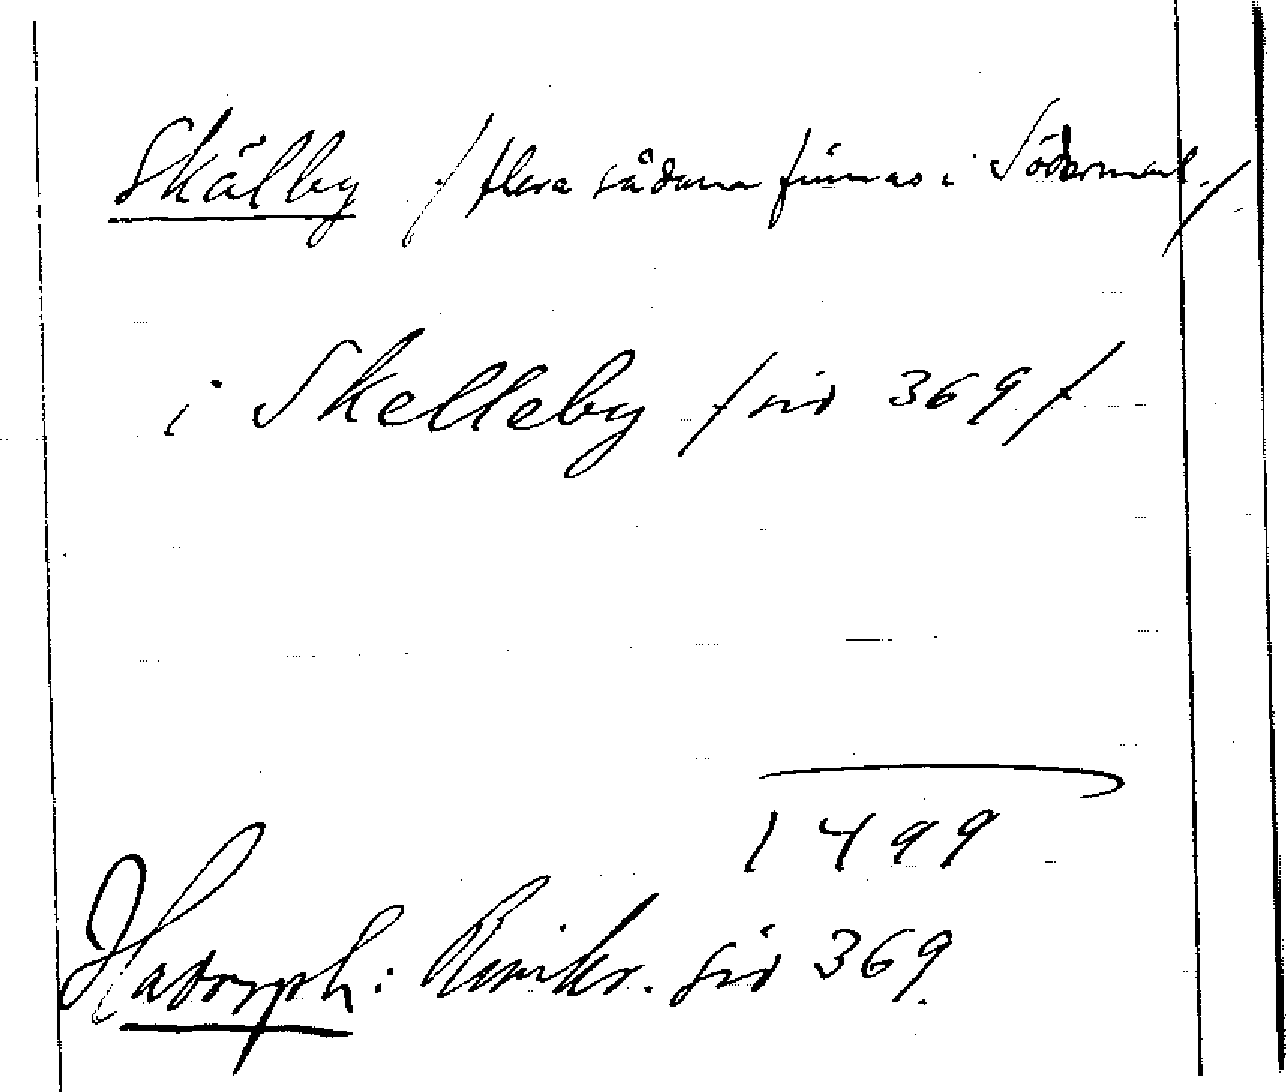 Skälby / flera sådana finnas i Södermanl. /
i Skelleby / sid 369 /
1499
Hadorph: Rimkr. sid 369.